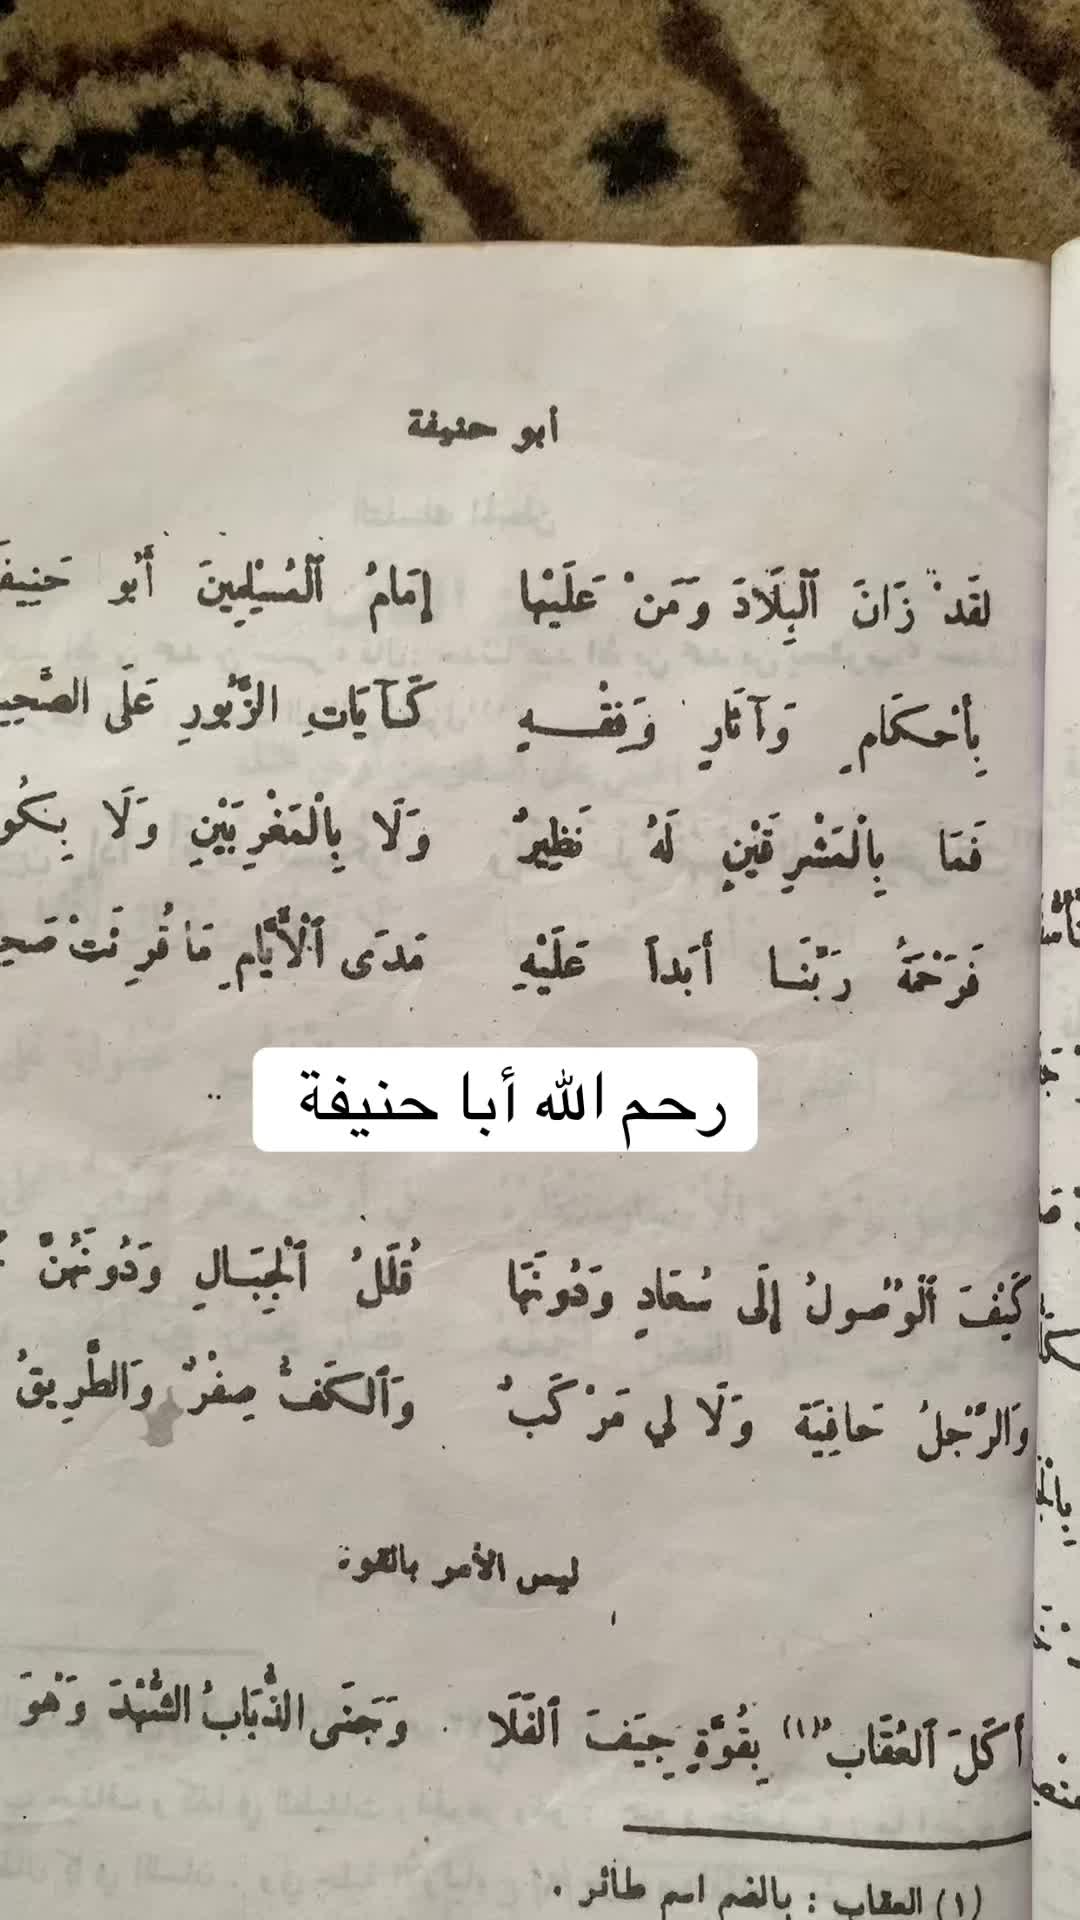 أبو حنيفة
لَقَدْ زَانَ ٱلْبِلَادَ وَمَنْ عَلَيْهَا إِمَامُ ٱلْمُسْلِمِينَ أَبُو
بِأَحْكَامٍ وَآثَارٍ وَفِقْهٍ كَآيَاتِ الزَّبُورِ عَلَى
فَمَا بِالْمَشْرِقَيْنِ لَهُ نَظِيرٌ وَلَا بِالْمَغْرِبَيْنِ وَلَا
فَرَحْمَةُ رَبِّنَا أَبَداً عَلَيْهِ مَدَى ٱلْأَيَّامِ مَا قُرِئَتْ
رحم الله أبا حنيفة
كَيْفَ ٱلْوُصولُ إِلَى سُعَادٍ وَدُونَهَا قُلَلُ ٱلْجِبَالِ وَدُونَهُنَّ
وَالرِّجْلُ حَافِيَة وَلَا لِي مَرْكَبٌ وَٱلكَفُّ صِفْرٌ وَالطَّرِيقُ
ليس الأمر بالقوة
أَكَلَ ٱلعُقَابُ (١) بِقُوَّةٍ جِيَفَ ٱلفَلَا وَجَنَى الذُّبَابُ الشَّهْدَ وَهْوَ
(١) العقاب : بالضم اسم طائر .